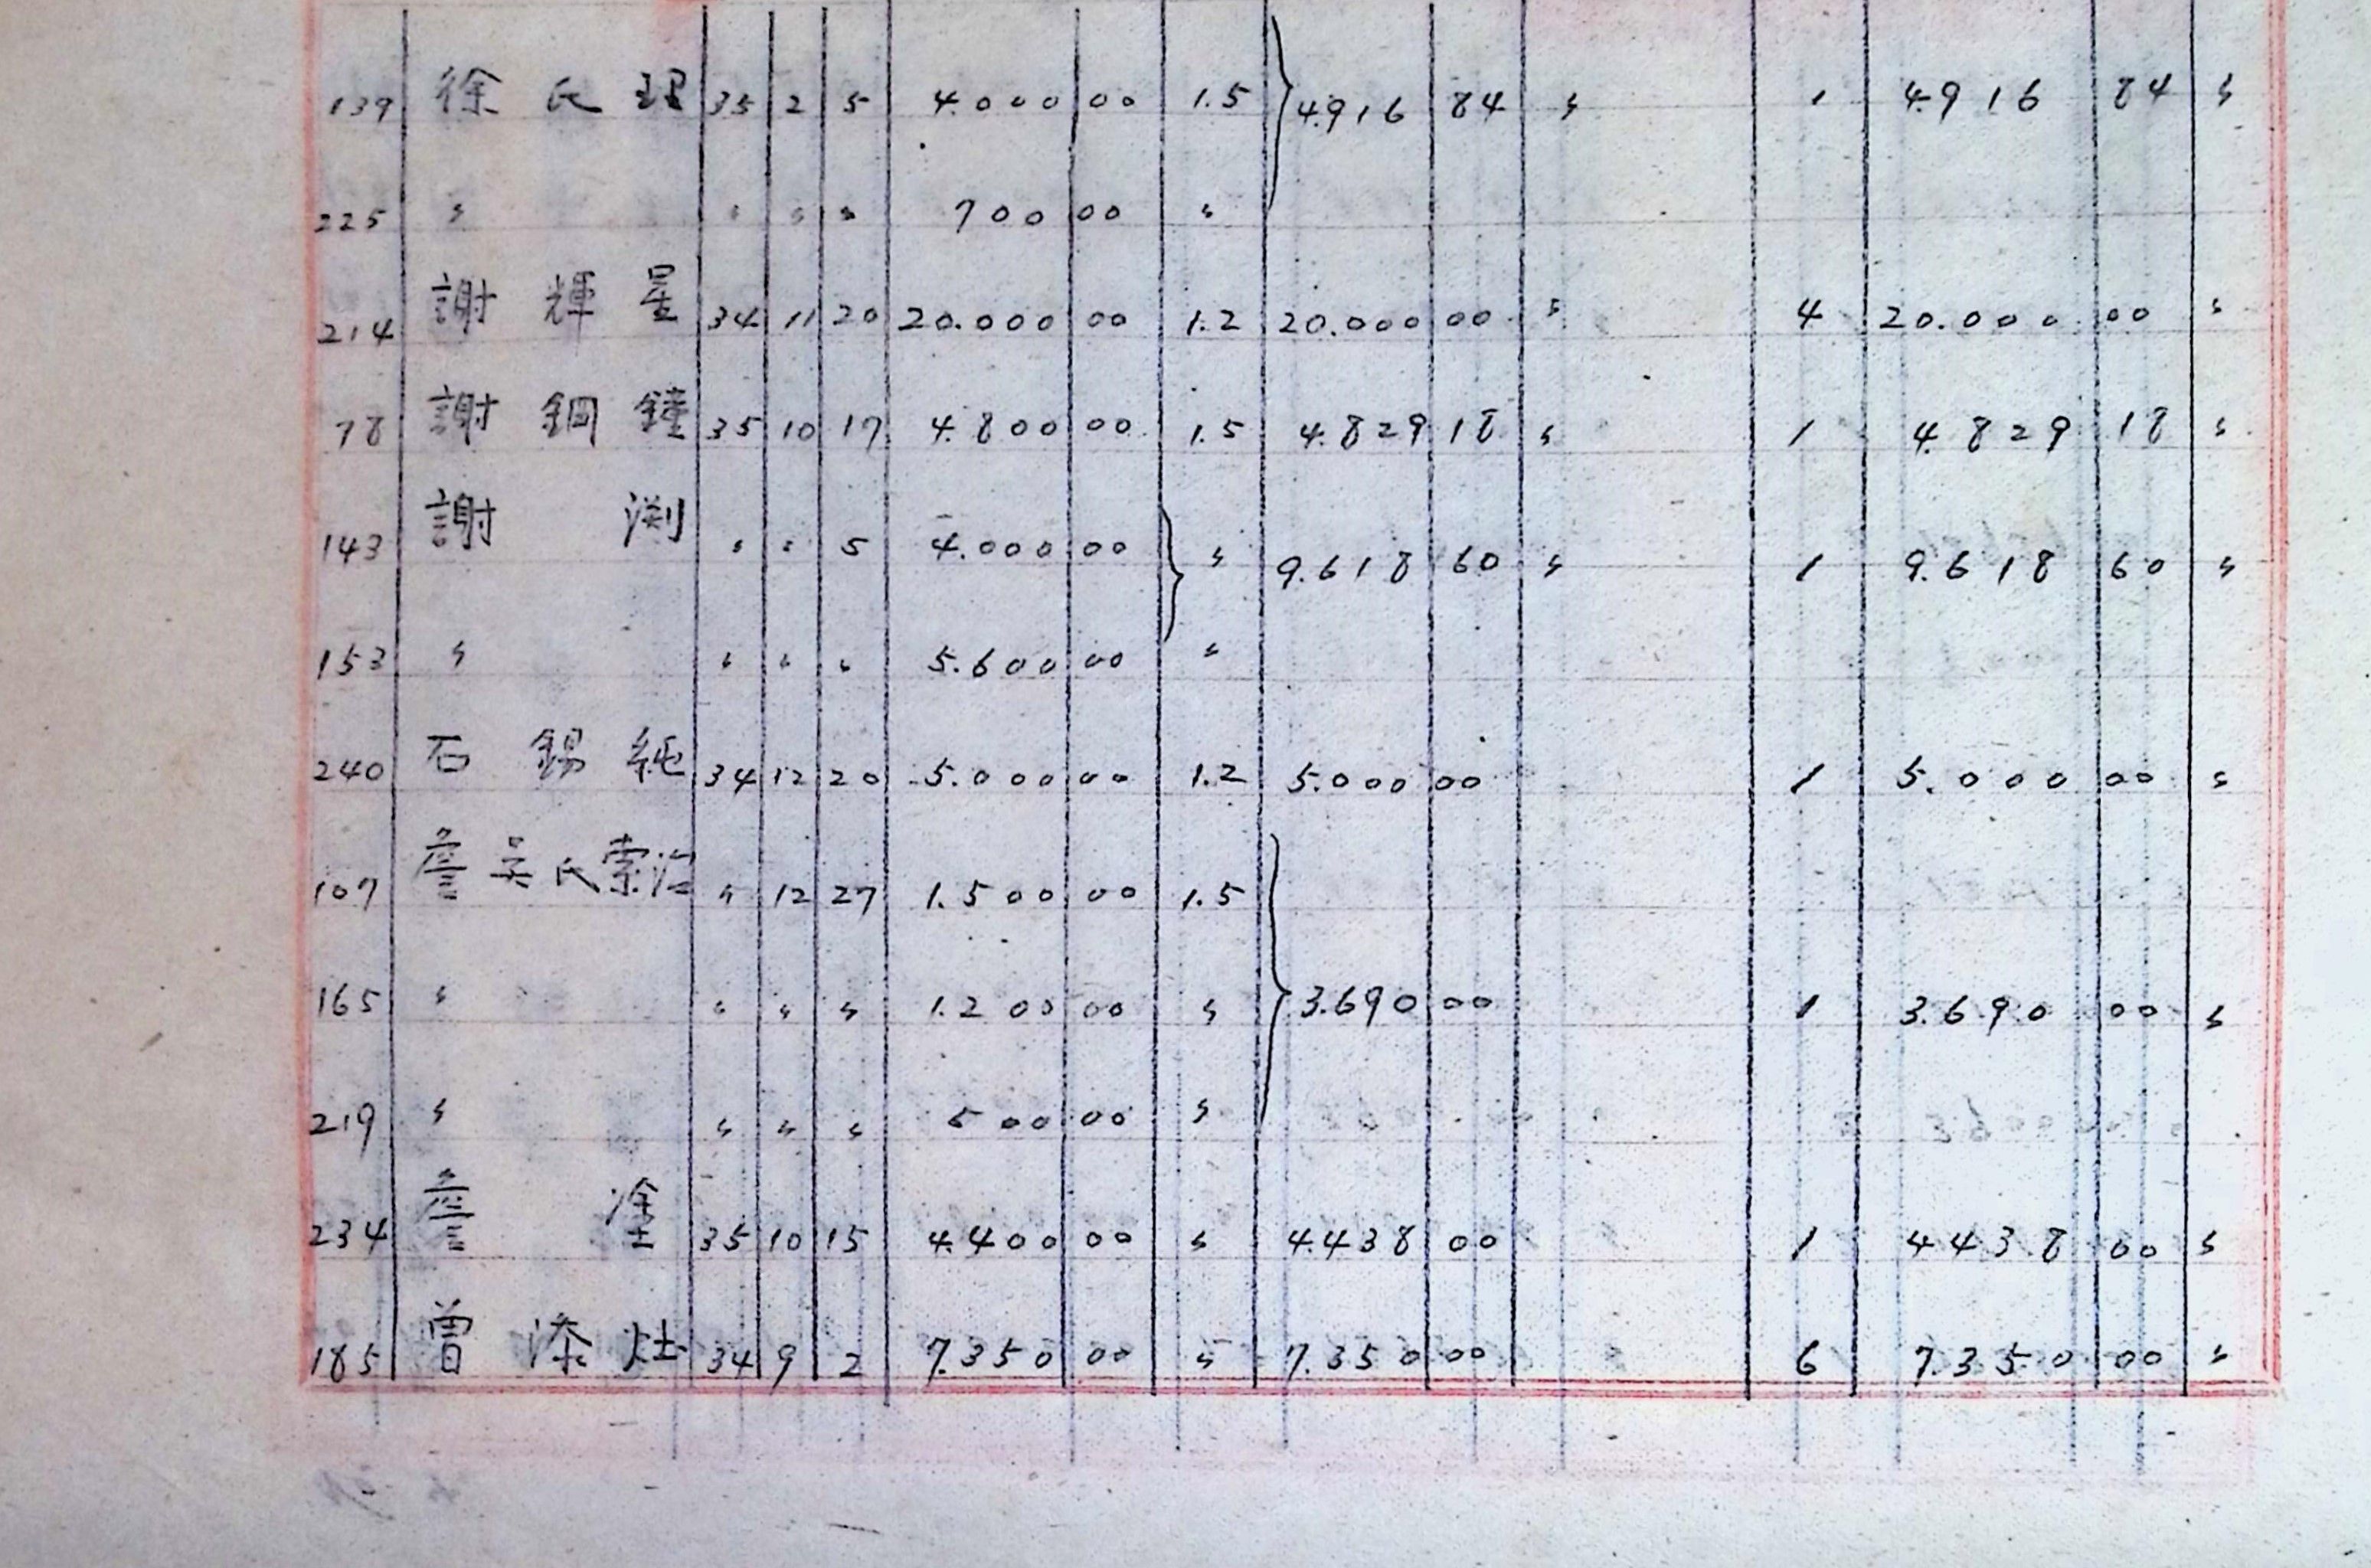 139 徐氏理 35 2 5 4.000 00 1.5 4.916 84 〃 1 4.916 84 〃
225 〃 〃 〃 〃 700 00 〃
214 謝輝星 34 11 20 20.000 00 1.2 20.000 00 〃 4 20.000 00 〃
78 謝鋼鐘 35 10 17 4.800 00 1.5 4.829 18 〃 1 4.829 18 〃
143 謝渕 〃 〃 5 4.000 00 〃 9.618 60 〃 1 9.618 60 〃
153 〃 〃 〃 〃 5.600 00 〃
240 石錫純 34 12 20 5.000 00 1.2 5.000 00 1 5.000 00 〃
107 詹吳氏 治 〃 12 27 1.500 00 1.5
165 〃 〃 〃 〃 1.200 00 〃 3.690 00 1 3.690 00 〃
219 〃 〃 〃 〃 500 00 〃
234 詹塗 35 10 15 4.400 00 〃 4.438 00 1 4.438 00 〃
185 曾添灶 34 9 2 7.350 00 〃 7.350 00 6 7.350 00 〃